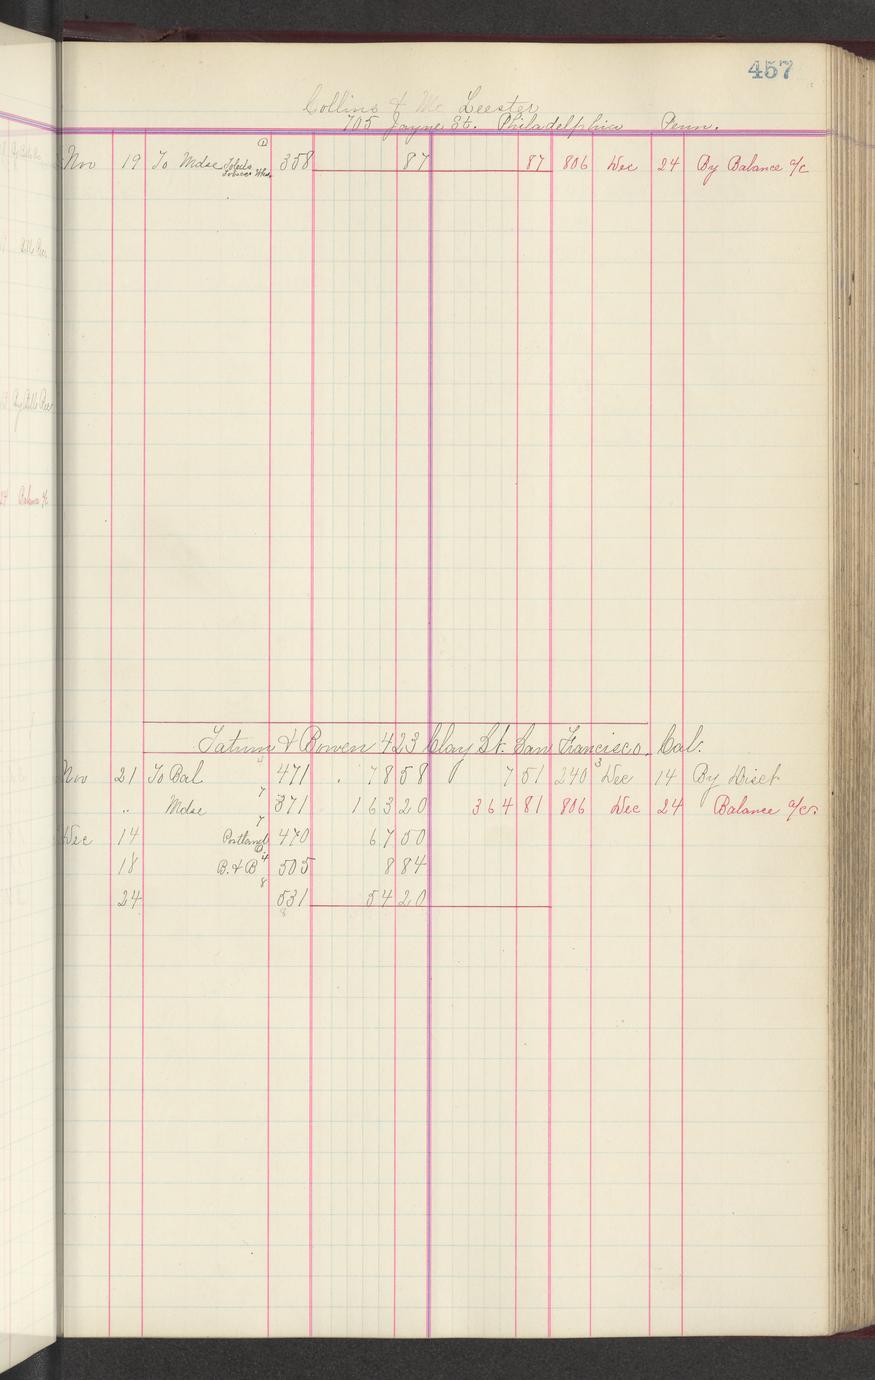 457
Collins & Mc Leester
705 Jayne St. Philadelphia Penn.
Nov 19 To Mdse Toledo 1 358 87 87 806 Dec 24 By Balance a/c
Tatum & Bowen 423 Clay St. San Francisco. Cal.
Nov 21 To Bal 4 471 78 58 7 51 240 3 Dec 14 By Disct
" Mdse 7 371 163 20 364 81 806 Dec 24 Balance a/c
Dec 14 Portland 7 470 67 50
18 B. & B 4 505 8 84
24 8 531 54 20
8
By Bills Rec
24 Balance a/c